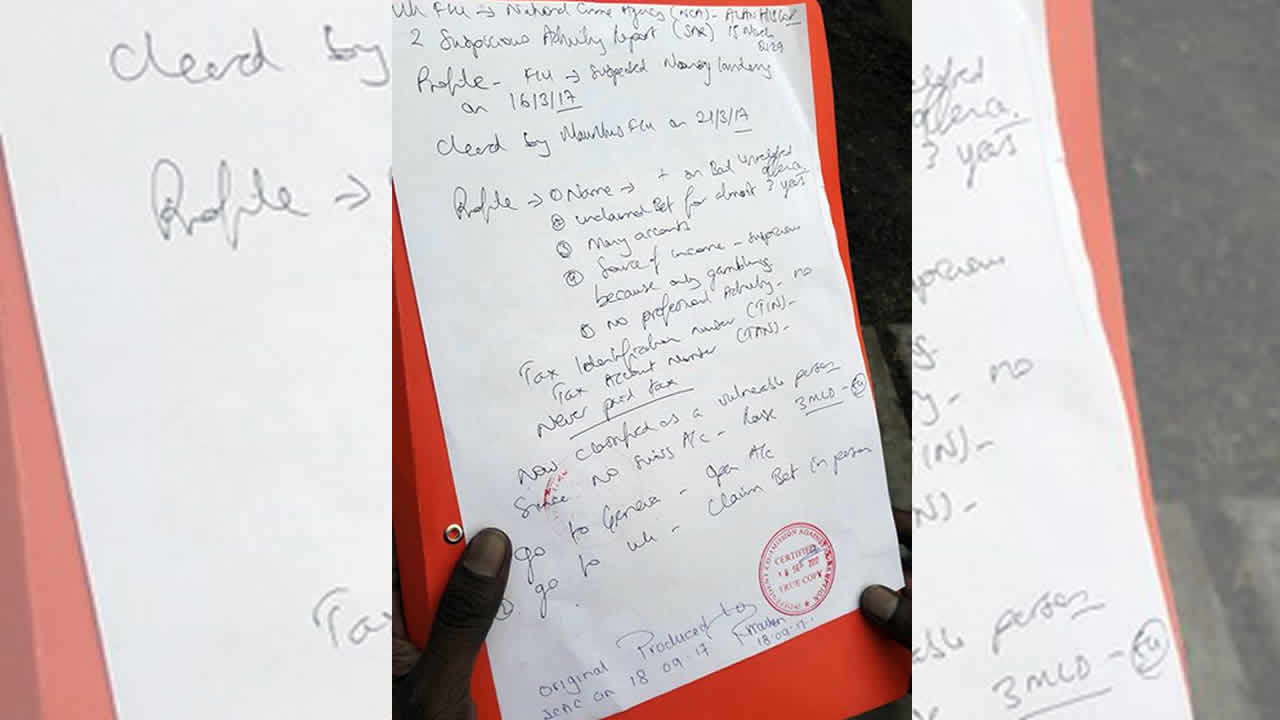 Uk FIU → National Crime Agency (NCA) -
2 Suspicious Activity Report (SAR) 15 March
Profile - FIU → Suspected Money
on 16/3/17
Cleared by Mauritius FIU on 21/3/17
Profile → ① Name → + on Bet
② unclaimed Bet for almost 3 years
③ Many accounts
④ Source of income - suspicious
because only gambling
⑤ No professional Activity - no
Tax Identification number (TIN) -
Tax Account Number (TAN) -
Never paid tax
Now classified as a vulnerable person
Since no Swiss A/c - 3MLD -
go to Geneva - open A/c
go to Uk - Claim Bet in person
CERTIFIED
TRUE COPY
Original Produced to
on 18 09 17
18.09.17